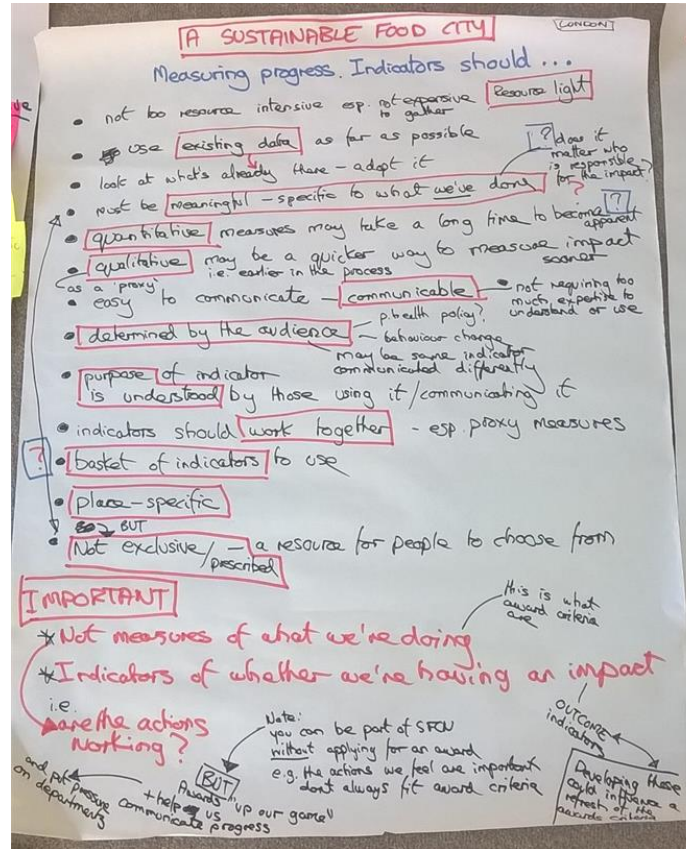 A SUSTAINABLE FOOD CITY
LONDON
Measuring progress. Indicators should ...
• not too resource intensive esp. not expensive to gather
Resource light
• use existing data as far as possible
• look at what's already there - adopt it
? does it
matter who
is responsible
for the impact?
• Must be meaningful - specific to what we've done
?
?
• quantitative measures may take a long time to become apparent
• qualitative may be a quicker way to measure impact
sooner
as a 'proxy' i.e. earlier in the process
• easy to communicate - communicable
• not requiring too
much expertise to
understand or use
• determined by the audience
p.health policy?
behaviour change
may be same indicator
communicated differently
• purpose of indicator
is understood by those using it/communicating it
• indicators should work together - esp. proxy measures
?
• basket of indicators to use
• place-specific
BUT
• Not exclusive/ - a resource for people to choose from
prescribed
IMPORTANT
this is what
award criteria
are
* Not measures of what we're doing
* Indicators of whether we're having an impact
i.e.
are the actions
working?
OUTCOME
indicators
Developing these
could influence a
refresh of the
awards criteria
Note:
you can be part of SFCN
without applying for an award
e.g. the actions we feel are important
don't always fit award criteria
BUT
Awards "up our game"
+ help us
communicate progress
and put pressure
on departments